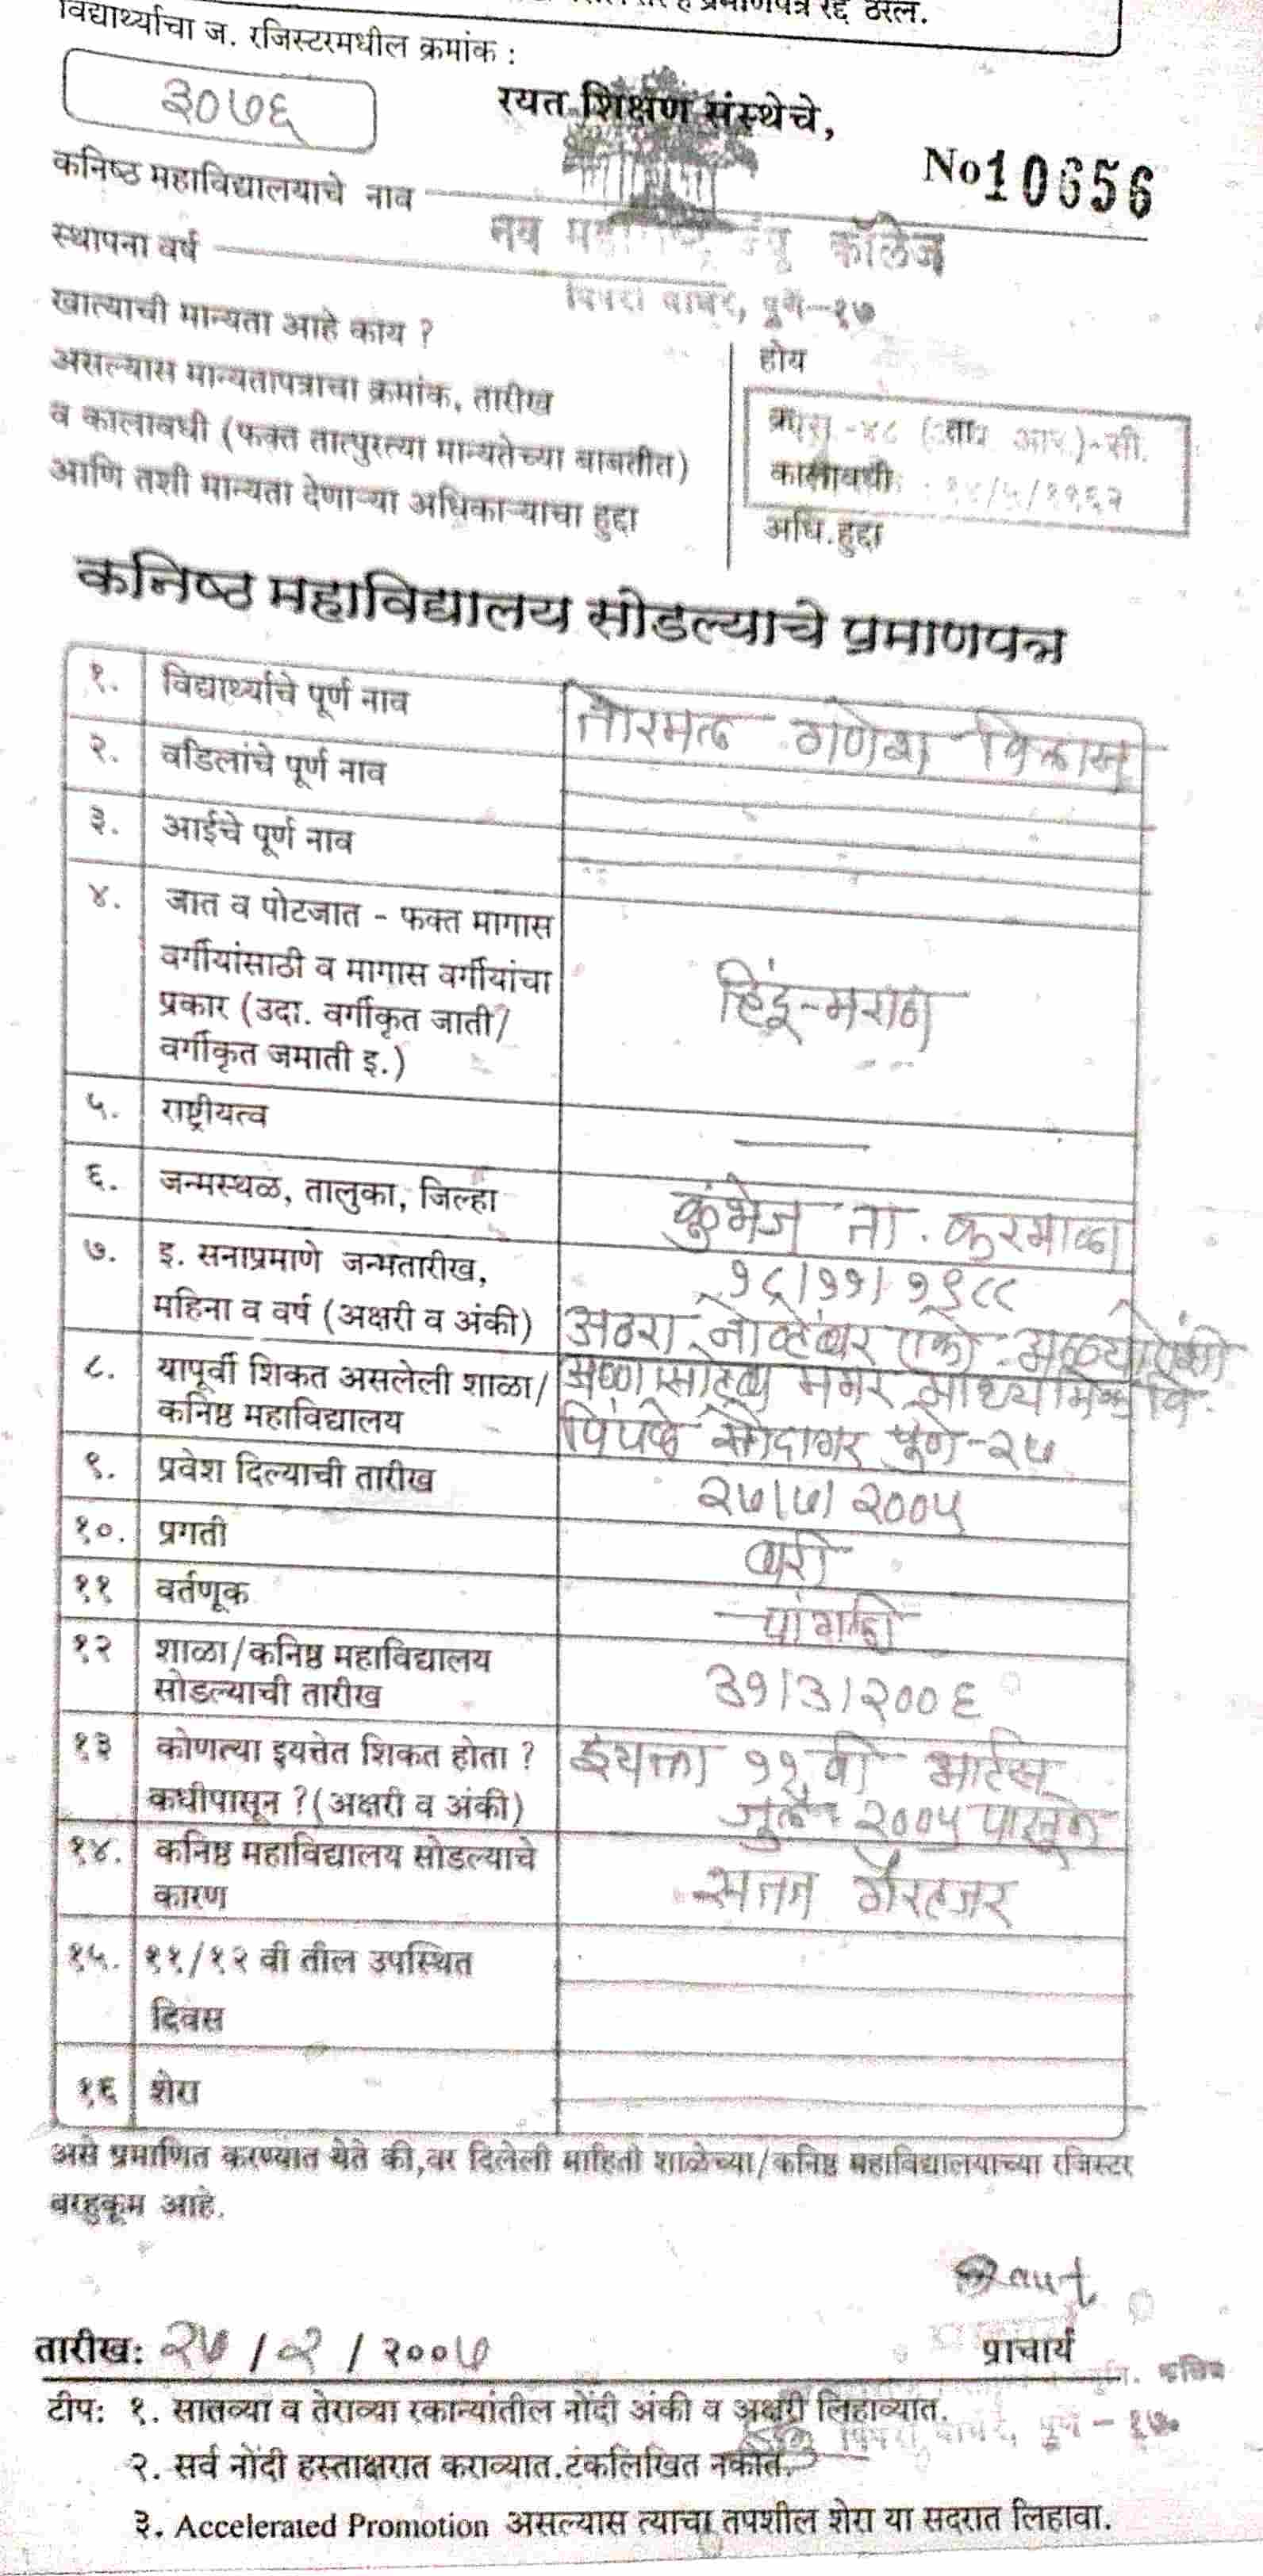 प्रमाणपत्र रद्द ठरेल.
विद्यार्थ्याचा ज. रजिस्टरमधील क्रमांक :
३०७६
रयत शिक्षण संस्थेचे,
No 10656
कनिष्ठ महाविद्यालयाचे नाव
नव कॉलेज
स्थापना वर्ष
पुणे-१७
खात्याची मान्यता आहे काय ?
होय
असल्यास मान्यतापत्राचा क्रमांक, तारीख
व कालावधी (फक्त तात्पुरत्या मान्यतेच्या बाबतीत)
कालावधी
आणि तशी मान्यता देणाऱ्या अधिकाऱ्याचा हुद्दा
अधि.हुद्दा
कनिष्ठ महाविद्यालय सोडल्याचे प्रमाणपत्र
१. विद्यार्थ्याचे पूर्ण नाव तोरमल गणेश विकास
२. वडिलांचे पूर्ण नाव
३. आईचे पूर्ण नाव
४. जात व पोटजात - फक्त मागास
वर्गीयांसाठी व मागास वर्गीयांचा
प्रकार (उदा. वर्गीकृत जाती/
वर्गीकृत जमाती इ.)
हिंदू-मराठा
५. राष्ट्रीयत्व
६. जन्मस्थळ, तालुका, जिल्हा कुंभेज ता. करमाळा
७. इ. सनाप्रमाणे जन्मतारीख, १८/११/१९८८
महिना व वर्ष (अक्षरी व अंकी) अठरा नोव्हेंबर
८. यापूर्वी शिकत असलेली शाळा/ मगर माध्यमिक वि.
कनिष्ठ महाविद्यालय पिंपळे सौदागर पुणे-२७
९. प्रवेश दिल्याची तारीख २७/७/२००५
१०. प्रगती बरी
११ वर्तणूक चांगली
१२ शाळा/कनिष्ठ महाविद्यालय
सोडल्याची तारीख ३१/३/२००६
१३ कोणत्या इयत्तेत शिकत होता ? इयत्ता ११ वी आर्टस्
कधीपासून ?(अक्षरी व अंकी) जुलै २००५ पासून
१४. कनिष्ठ महाविद्यालय सोडल्याचे
कारण सतत गैरहजर
१५. ११/१२ वी तील उपस्थित
दिवस
१६ शेरा
असे प्रमाणित करण्यात येते की,वर दिलेली माहिती शाळेच्या/कनिष्ठ महाविद्यालयाच्या रजिस्टर
बरहुकूम आहे.
तारीख: २७ / २ / २००७
प्राचार्य
टीप: १. सातव्या व तेराव्या रकान्यांतील नोंदी अंकी व अक्षरी लिहाव्यात.
पुणे - १७.
२. सर्व नोंदी हस्ताक्षरात कराव्यात.टंकलिखित नकोत.
३. Accelerated Promotion असल्यास त्याचा तपशील शेरा या सदरात लिहावा.